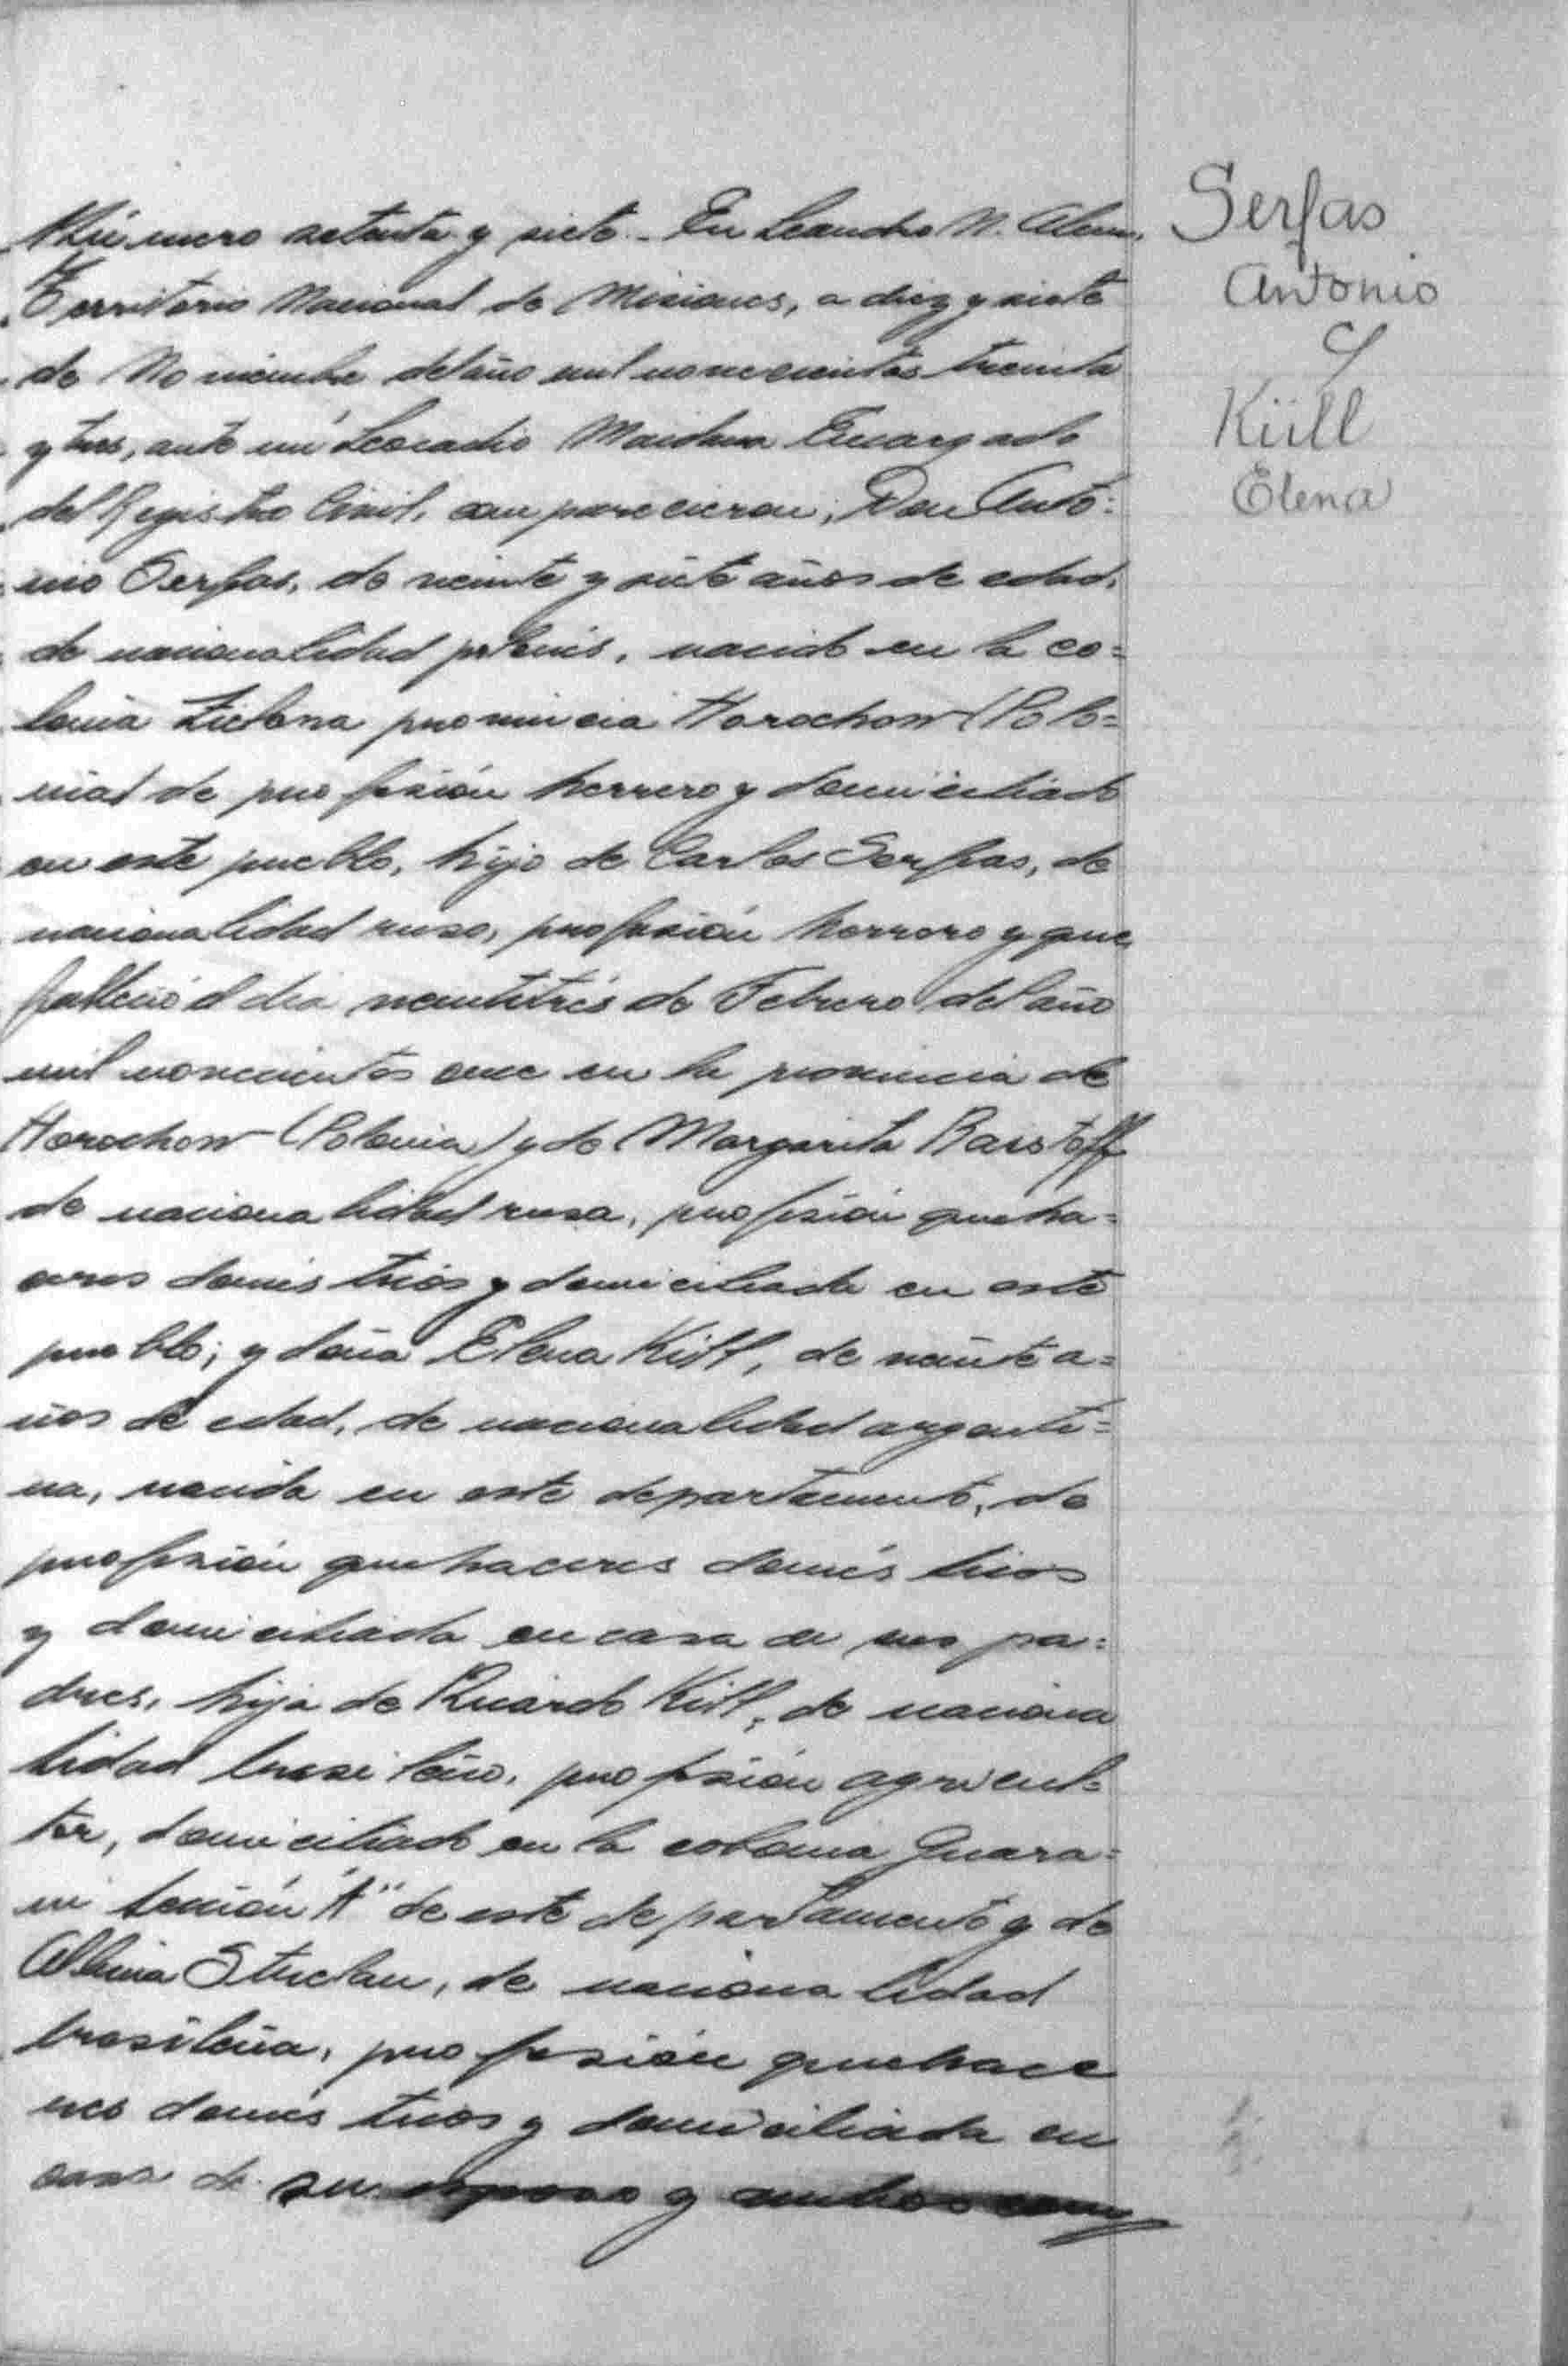 Número setenta y siete.- En Leandro N. Alem,
Territorio Nacional de Misiones, a diez y siete
de Noviembre del año mil novecientos treinta
y tres, ante mí Leocadio Maidana Encargado
del Registro Civil, comparecieron; Don Anto=
nio Serfas, de veinte y siete años de edad,
de nacionalidad polonés, nacido en la co=
lonia Zielona provincia Horochow (Polo=
nia) de profesión herrero y domiciliado
en este pueblo, hijo de Carlos Serfas, de
nacionalidad ruso, profesión herrero y que
falleció el dia veintitrés de Febrero del año
mil novecientos once en la provincia de
Horochow (Polonia) y de Margarita
de nacionalidad rusa, profesión queha=
ceres domésticos y domiciliada en este
pueblo; y doña Elena Küll, de veinte a=
ños de edad, de nacionalidad argenti=
na, nacida en este departamento, de
profesión quehaceres domésticos
y domiciliada en casa de sus pa=
dres, hija de Ricardo Küll, de naciona
lidad brasileño, profesión agricul=
tor, domiciliado en la colonia Guara=
ní sección "A" de este departamento y de
Albina, de nacionalidad
brasileña, profesión quehace
res domésticos y domiciliada en
casa de su esposo y ambos
Serfas
Antonio
y
Küll
Elena